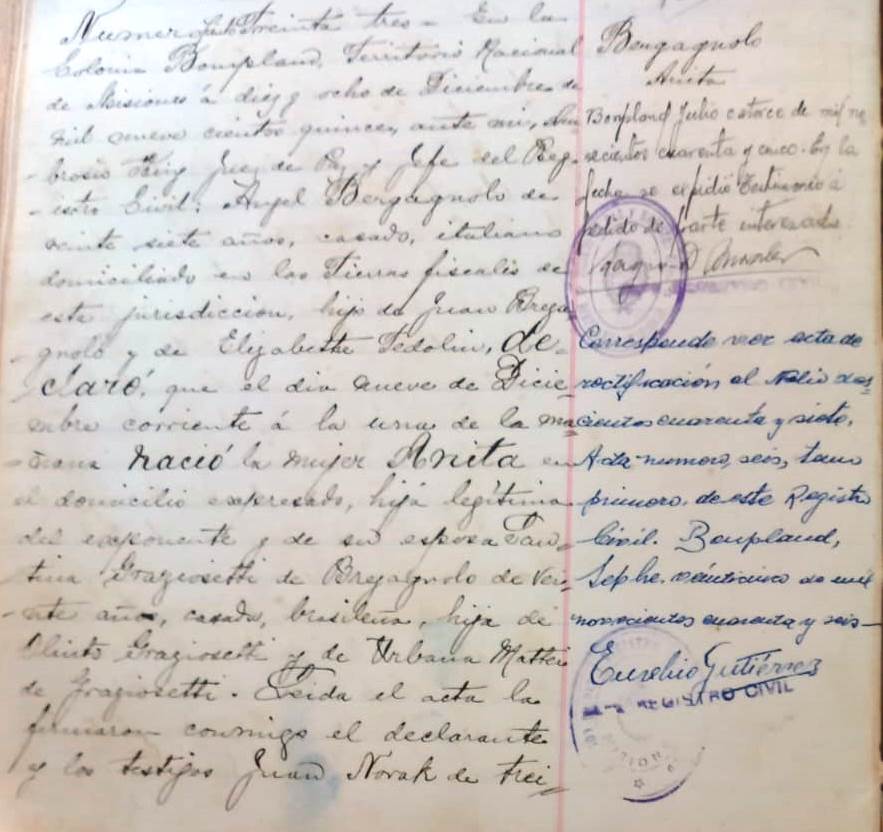 Numero Treinta tres = En la
Colonia Bompland, Territorio Nacional
de Misiones á diez y ocho de Diciembre de
mil nueve cientos quince, ante mi, Am-
brosio Juez de Paz y Jefe del Reg-
istro Civil: Angel Bergagnolo de
veinte siete años, casado, italiano
domiciliado en las Tierras fiscales de
esta jurisdiccion, hijo de Juan Brega-
gnolo y de Elizabethe Tedolin, de-
claró, que el dia nueve de Dicie-
mbre corriente á la una de la ma-
ñana nació la mujer Anita en
el domicilio expresado, hija legítima
del exponente y de su esposa San-
tina Graziosetti de Bregagnolo de vei-
nte años, casada, brasileña, hija de
Olinto Graziosetti y de Urbana Mattei
de Graziosetti. Leida el acta la
firmaron conmigo el declarante
y los testigos Juan Novak de trei-
Bergagnolo
Anita
Bonpland Julio catorce de mil no-
vecientos cuarenta y cinco. En la
fecha se expidió Testimonio á
pedido de parte interesada.
Corresponde ver acta de
rectificación al folio dos-
cientos cuarenta y siete,
Acta número, seis, tomo
primero, de este Registro
Civil. Bonpland,
Sepbe. veinticinco de mil
novecientos cuarenta y seis—
Eusebio Gutiérrez
REGISTRO CIVIL